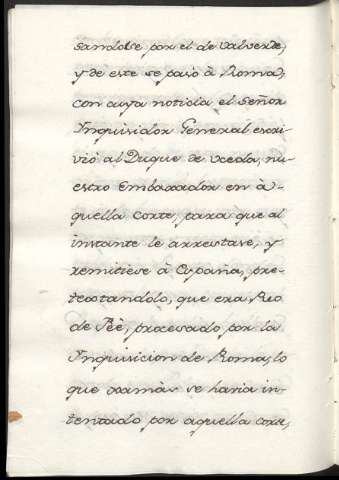 sandose por el de Valverde,
y de este se pasó à Roma,
con cuya noticia el Señor
Inquisidor General escri-
vió al Duque de Uceda, nu-
estro Embaxador en à-
quella corte, para que al
instante le arrestase, y
remitiese à España, pre-
textandolo, que era Reo
de Feè, procesado por la
Inquisicion de Roma, lo
que xamàs se haria in-
tentado por aquella cora,